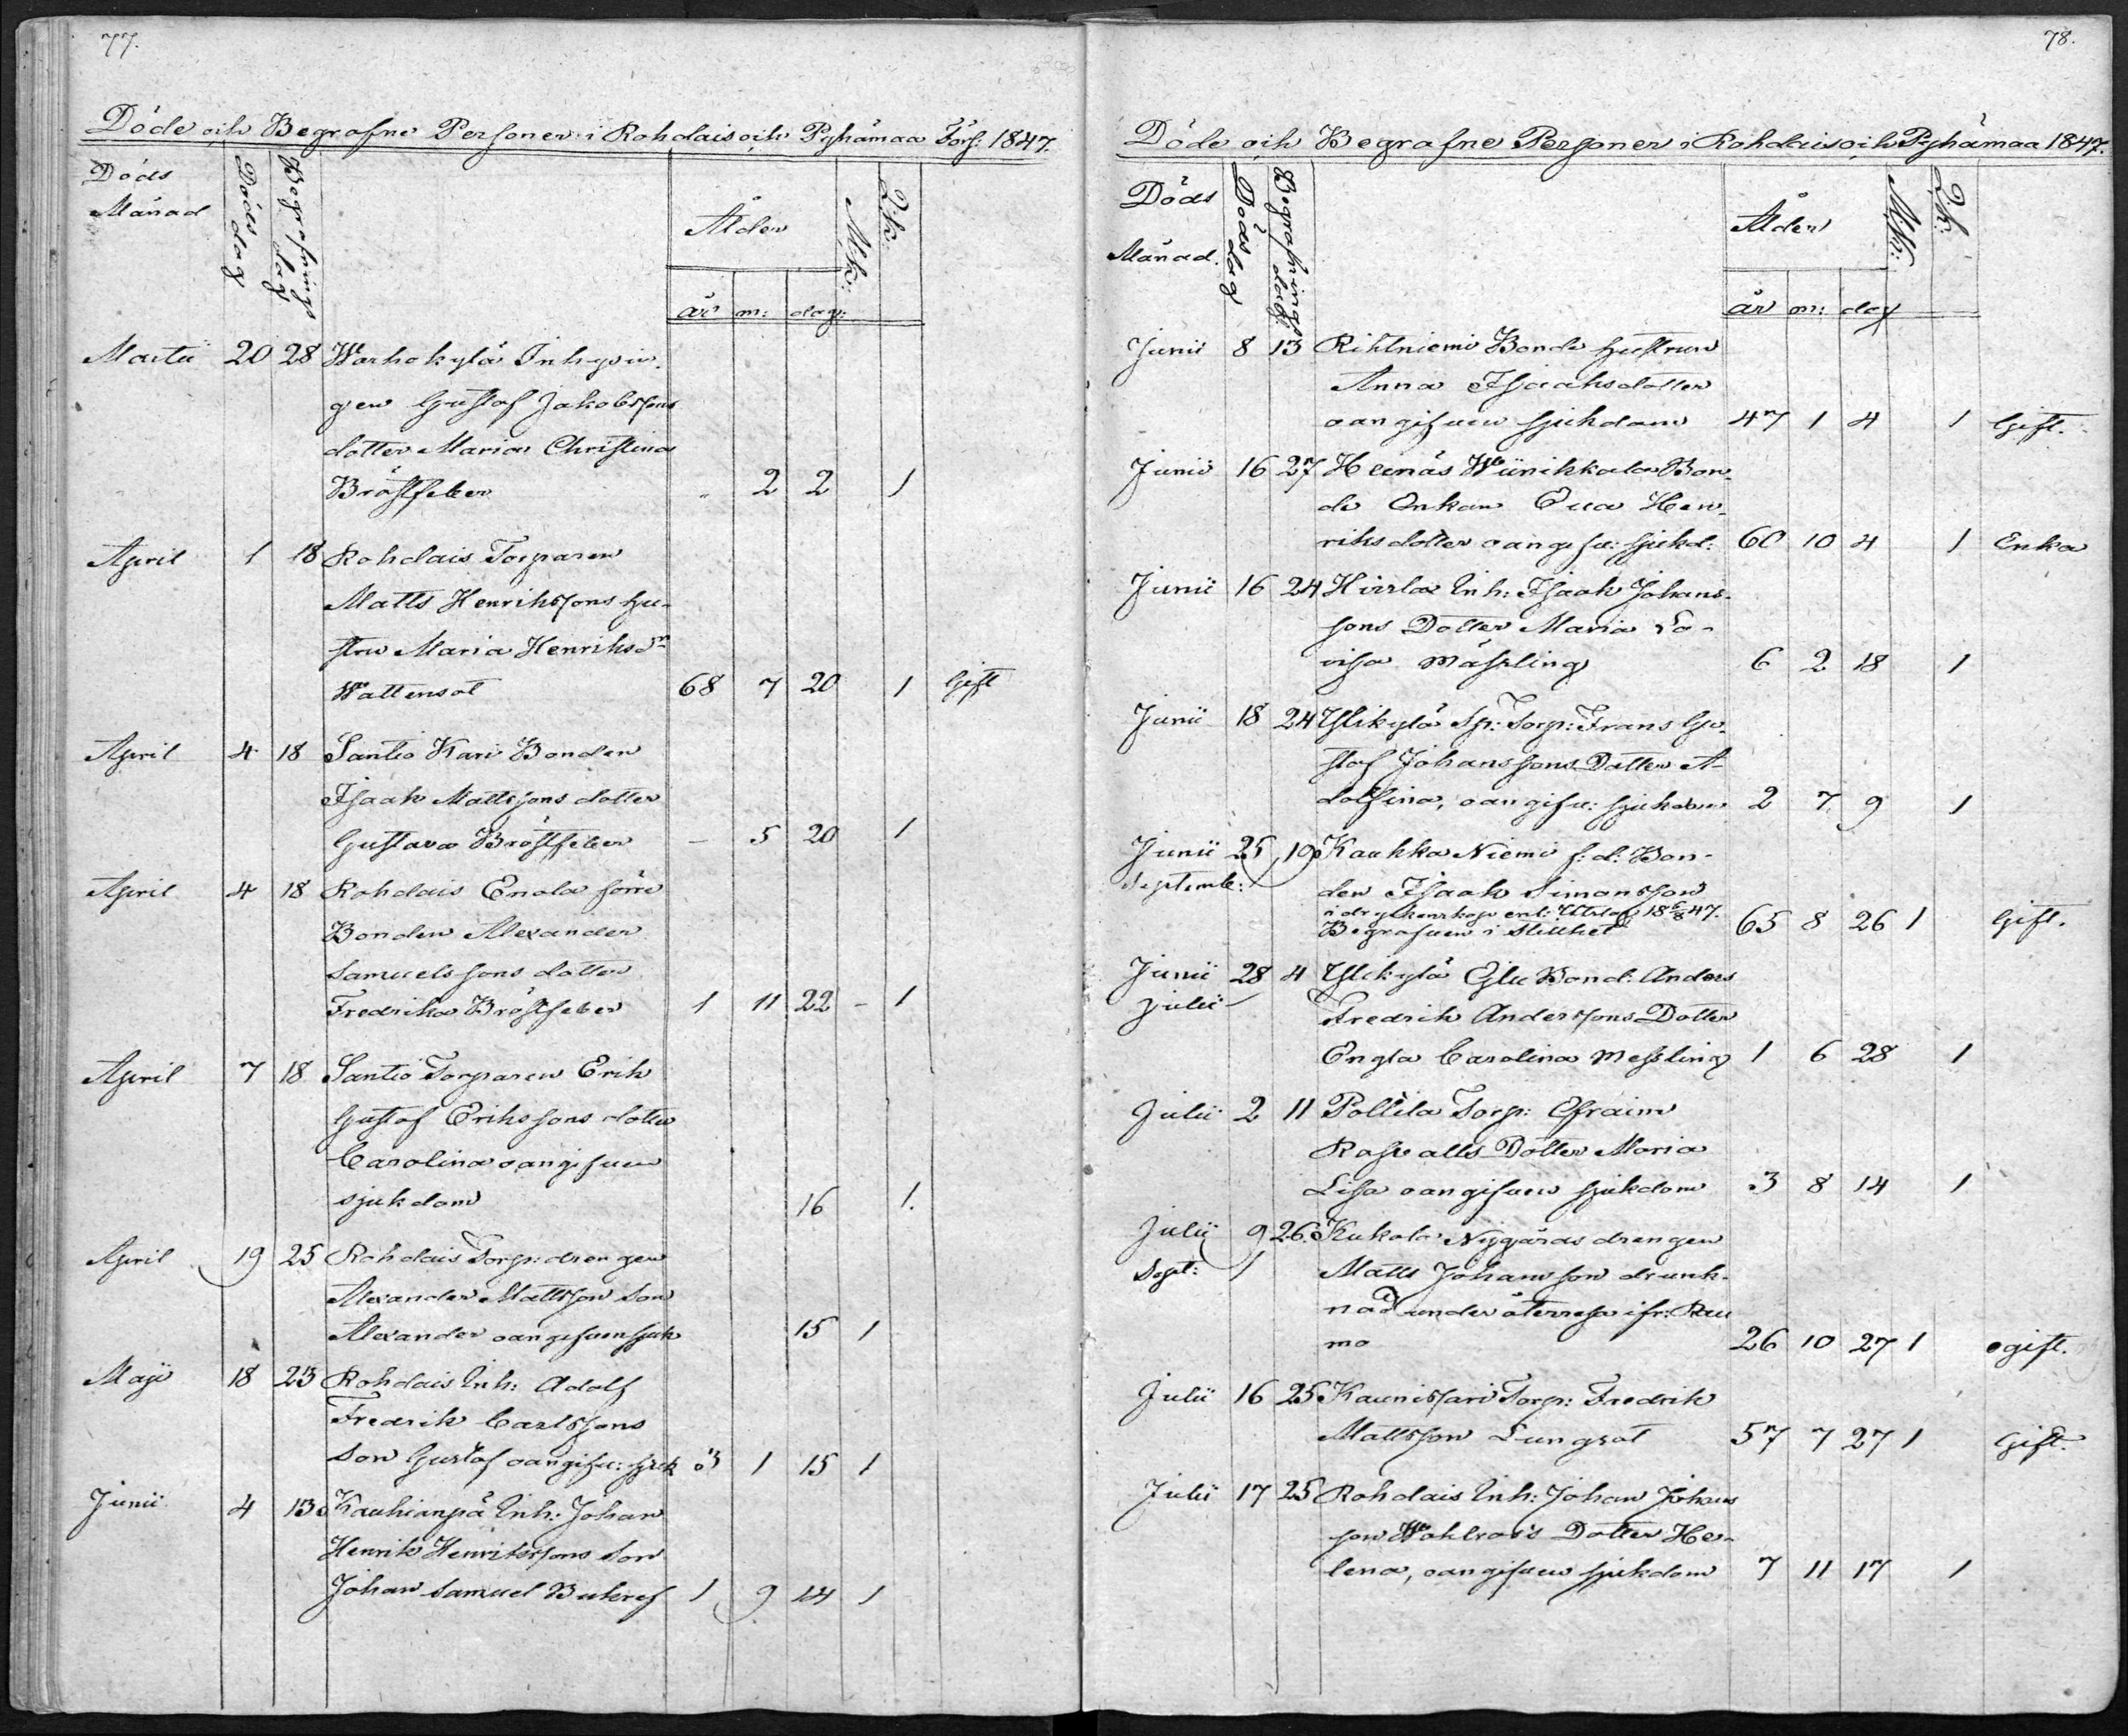 77.
Döde och Begrafne Personer i Rohdais och Pyhämaa Förs: 1847.
Döds Månad
Döds dag
Begrafnings dag
Ålder
år m: dag:
M.k:
Q.k:
Martii 20 28 Warhokylä Inhysin-
gen Gustaf Jakobssons
dotter Maria Christina
Bröstfeber " 2 2 1
April 1 18 Rohdais Torparen
Matts Henrikssons hu-
stru Maria Henriksdr
Wattensot 68 7 20 1 Gift
April 4 18 Santio Kari Bonden
Isaak Mattssons dotter
Gustava Bröstfeber - 5 20 1
April 4 18 Rohdais Enola förre
Bonden Alexander
Samuelssons dotter
Fredrika Bröstfeber 1 11 22 - 1
April 7 18 Santio Torparen Erik
Gustaf Erikssons dotter
Carolina oangifven
sjukdom 16 1.
April 19 25 Rohdais Torp: drengen
Alexander Mattsson Son
Alexander oangifven sjuk 15 1
Maji 18 23 Rohdais Inh: Adolf
Fredrik Carlssons
Son Gustaf oangifv: sjuk 3 1 15 1
Junii 4 13 Kauhianpä Inh: Johan
Henrik Henrikssons Son
Johan Samuel Bukref 1 9 14 1
78.
Döde och Begrafne Personer i Rohdais och Pyhämaa 1847.
Döds
Månad.
Döds dag
Begrafnings dag:
Ålder
år m: dag
M.k:
Q.k:
Junii 8 13 Rihtniemi Bonde hustrun
Anna Isaaksdotter
oangifven sjukdom 47 1 4 1 Gift.
Junii 16 27 Heinäs Wiinikkala Bon-
de Enkan Eva Hen-
riksdotter oangifv: sjukd: 60 10 4 1 Enka
Junii 16 24 Hirsla Inh: Isaak Johans-
sons Dotter Maria Lo-
visa Mässling 6 2 18 1
Junii 18 24 Ylikylä Sp: Torp: Frans Gu-
staf Johanssons Dotter A-
dolfina, oangifv: sjukdom 2 7 9 1
Junii 25 19 Kaukka Niemi f: d: Bon-
Septemb: den Isaak Simonsson
i dryckenskap enl: Utslag 18 6/8 47.
Begrafven i Stillhet 65 8 26 1 Gift.
Junii 28 4 Ylikylä Eglu Bond: Anders
Julii Fredrik Anderssons Dotter
Engla Carolina Messling 1 6 28 1
Julii 2 11 Pollila Torp: Efraim
Rosvalls Dotter Maria
Lisa oangifven sjukdom 3 8 14 1
Julii 9 26. Kukola Nygårds drengen
Sept: Matts Johansson drunk-
nad under återresa ifr: Rau
mo 26 10 27 1 ogift.
Julii 16 25 Kaunissari Torp: Fredrik
Mattsson Lungsot 57 7 27 1 Gift.
Julii 17 25 Rohdais Inh: Johan Johans
son Wahlroos Dotter He-
lena, oangifven sjukdom 7 11 17 1